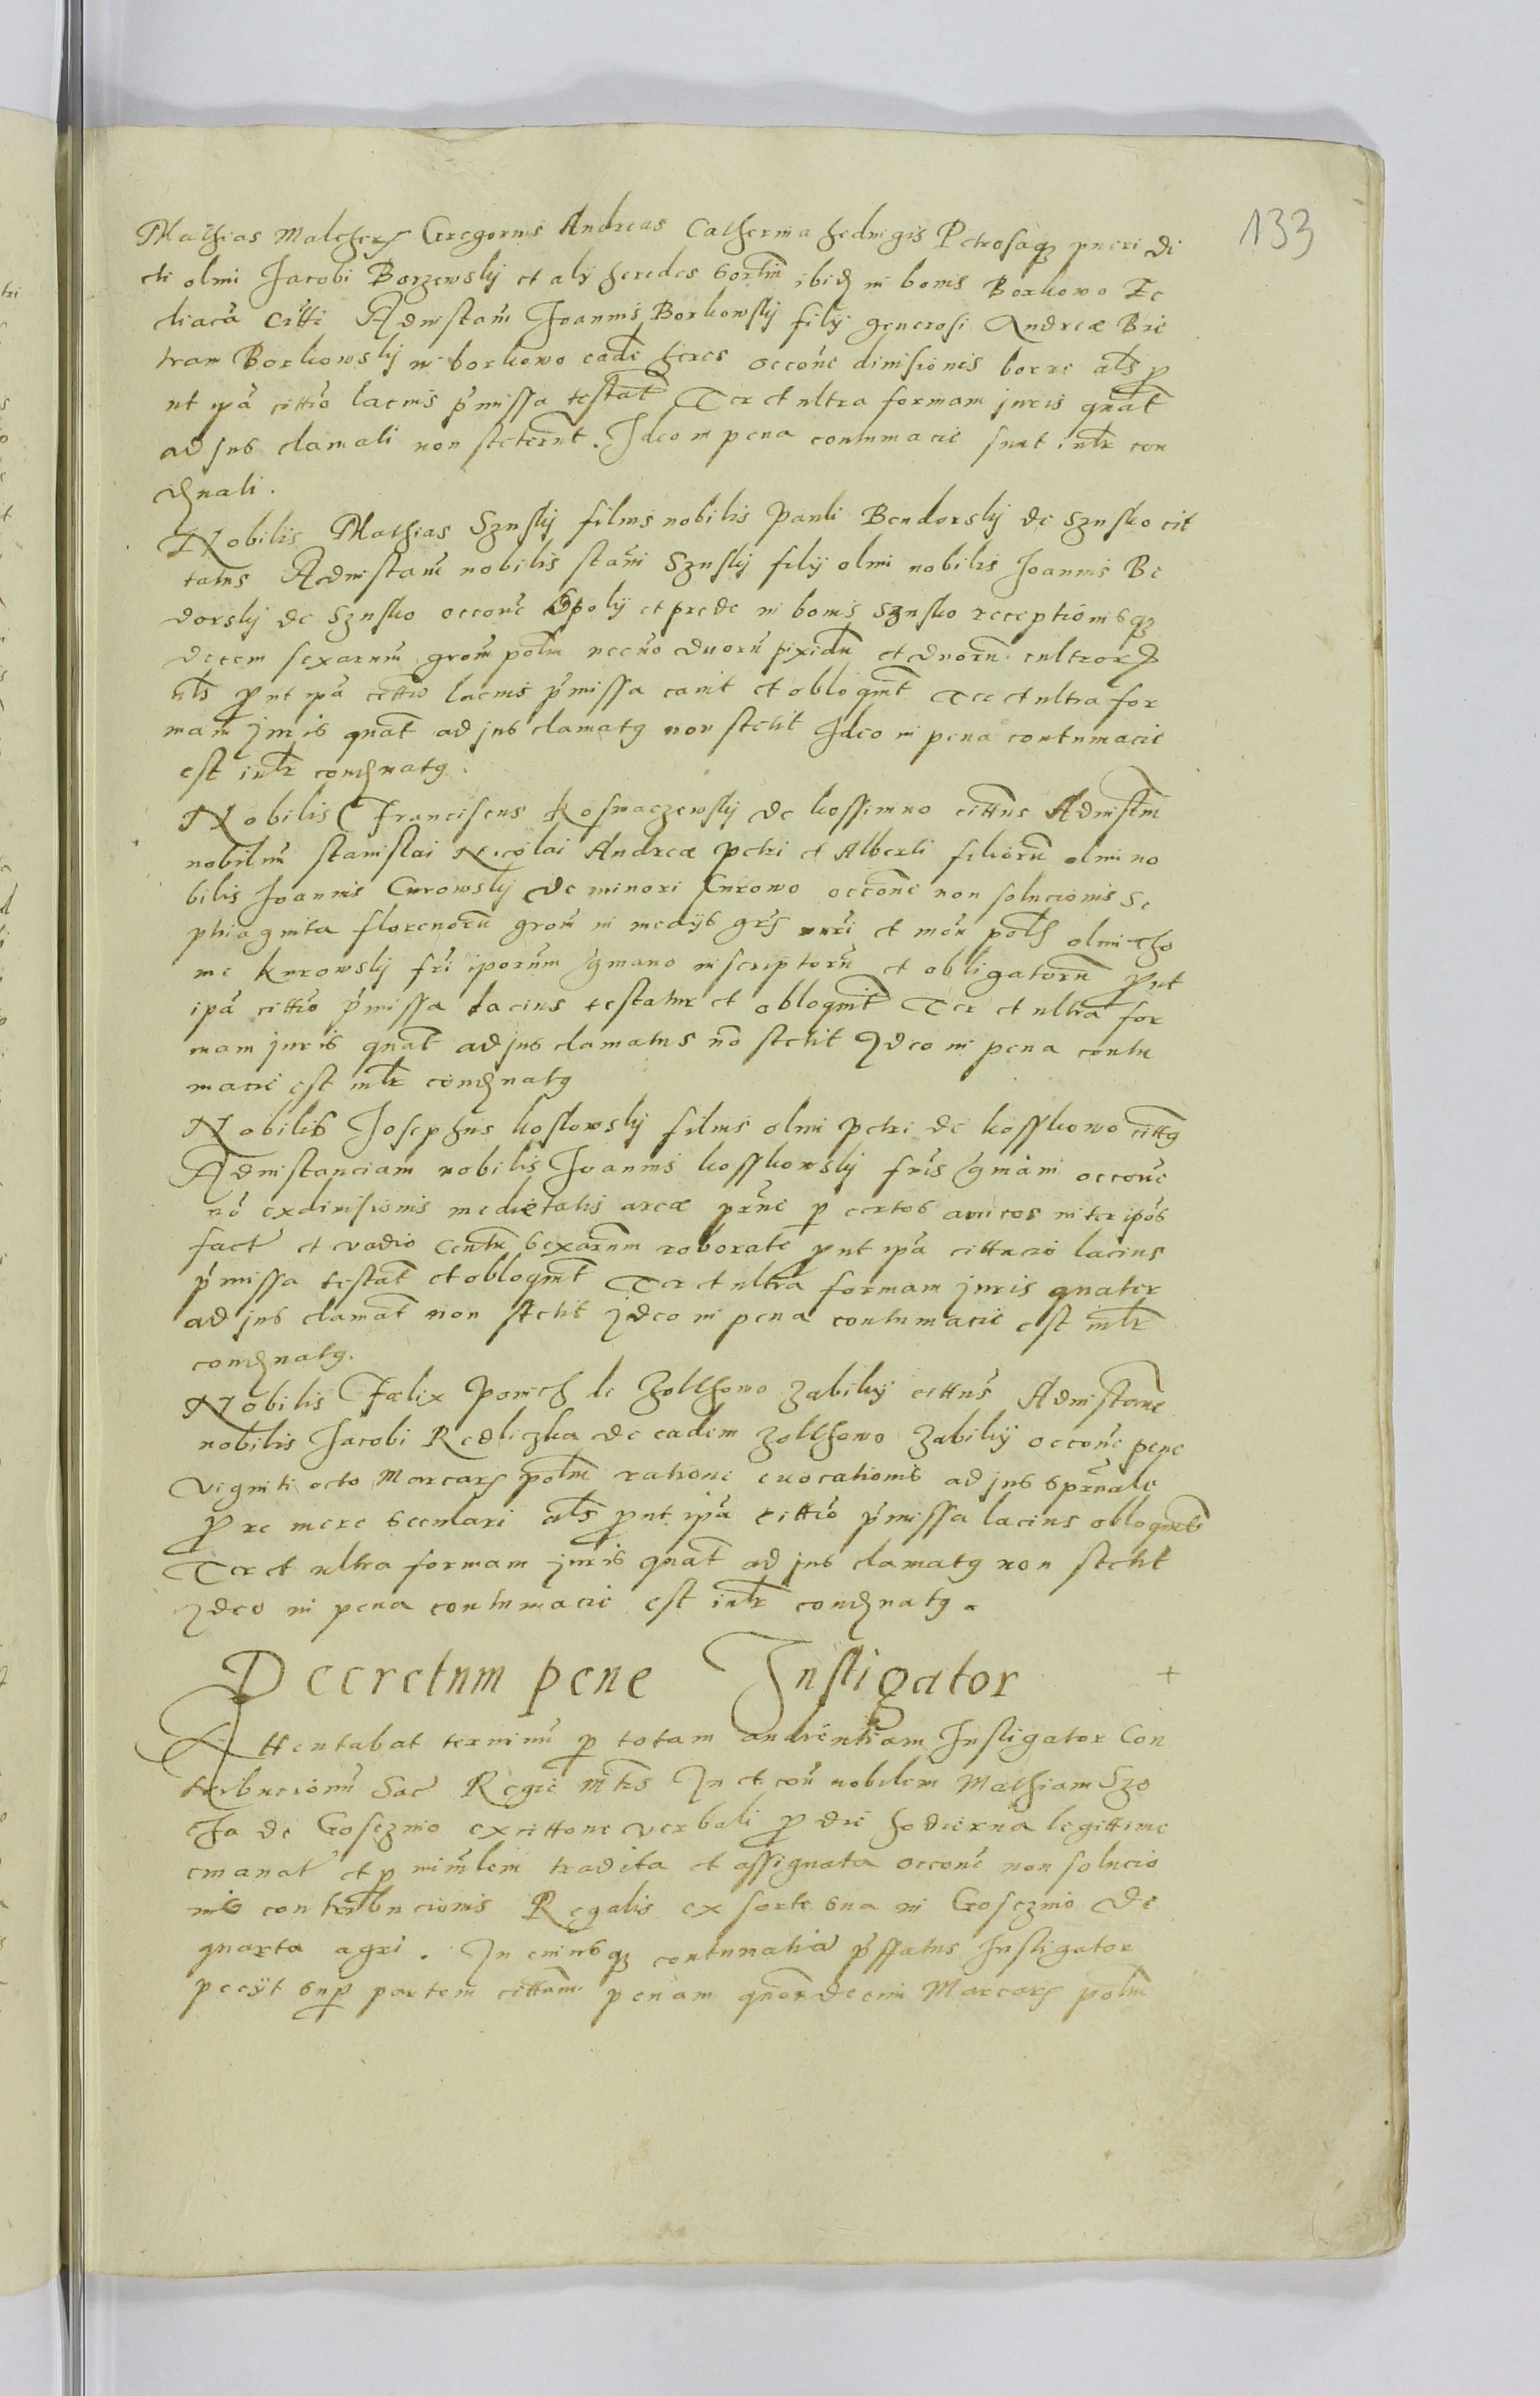 133
Mathias Malcher Gregorius Andreas Catherina hedvigis Petrosaq pueri di
cti olim Jacobi Borzewskij et alij heredes sortm ibid in bonis Borkowo Ze
citti Ad instam Joannis Borkowskij filij generosi Andreæ
Borkowskij in borkowo eade heres occone divisionis als p
ut ipa cittio lacius pmissa testat Ter et ultra formam juris quat
ad jus clamati non steterut. Ideo in pena contumacie sunt intr con
dnati.
Nobilis Mathias Szuskij filius nobilis Pauli Bendorskij de Szusko cit
tatus Ad instam nobilis stani Szuskij filij olim nobilis Joannis Be
dorskij de Szusko occone Spolij et prede in bonis Szusko receptionisq
decem sexarum grom polm necno duoru pixidu et duoru cultror
als put ipa cittio lacius pmissa canit et obloqnt Ter et ultra for
mam juris quat ad jus clamatg non stetit Ideo in pena contumacie
est intr condnatg.
Nobilis Franciscus Kosmaczewskij de kossimno cittus Ad instm
nobiliu stanislai Nicolai Andreæ Petri et Alberti filioru olim no
bilis Joannis Curowskij de minori Curowo occone non solucionis se
ptuaginta florenoru grom in medijs grs nuri et mon pol olim tho
me kurowskij fri iporum gmano inscriptoru et obligatoru put
ipa cittio pmissa lacius testatur et obloqnt Ter et ultra for
mam juris quat ad jus clamatus no stetit Ideo in pena contu
macie est intr condnatg
Nobilis Josephus koskowskij filius olim petri de kosskowo cittg
Ad instanciam nobilis Joannis kosskowskij fris gmani occone
no exdivisionis medietatis areæ prne p certos amicos inter ipos
fact et vadio Centu sexarum roborate put ipa cittacio lacius
pmissa testat et obloqnt Ter et ultra formam juris quater
ad jus clamat non stetit Ideo in pena contumacie est intr
condnatg.
Nobilis Fælix Ponich de Zolthowo Zabikij cittus Ad instane
nobilis Jacobi Redliczka de eadem Zolthowo Zabikij occone pene
viginti octo Marcar polm ratione evocationis ad jus sprnale
p re mere seculari als put ipa cittio pmissa lacius obloqnt
Ter et ultra formam juris quat ad jus clamatg non stetit
Ideo in pena contumacie est intr condnatg.
Decretum pene Instigator +
Attentabat terminu p totam audientiam Instigator Con
tribucionu Sac Regie mtis In et con nobilem Mathiam Szo
cha de Gosczino ex cittone verbali p die hodierna legittime
emanat et p minlem tradita et assignata occone non solucio
nis contribucionis Regalis ex sorte sua in Gosczino de
quarta agri. In cuiusq contumatia pffatus Instigator
pecijt sup partem cittam penam quordecim Marcar polm